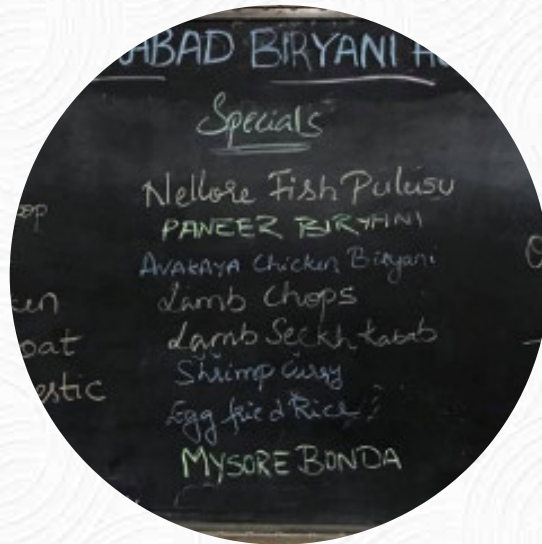 ABAD BIRYANI
Specials
Nellore Fish Pulusu
PANEER BIRYANI
AVAKAYA Chicken Biryani
Lamb Chops
Lamb Seekh Kabab
Shrimp Curry
Egg fried Rice
MYSORE BONDA
op
ken
oat
estic